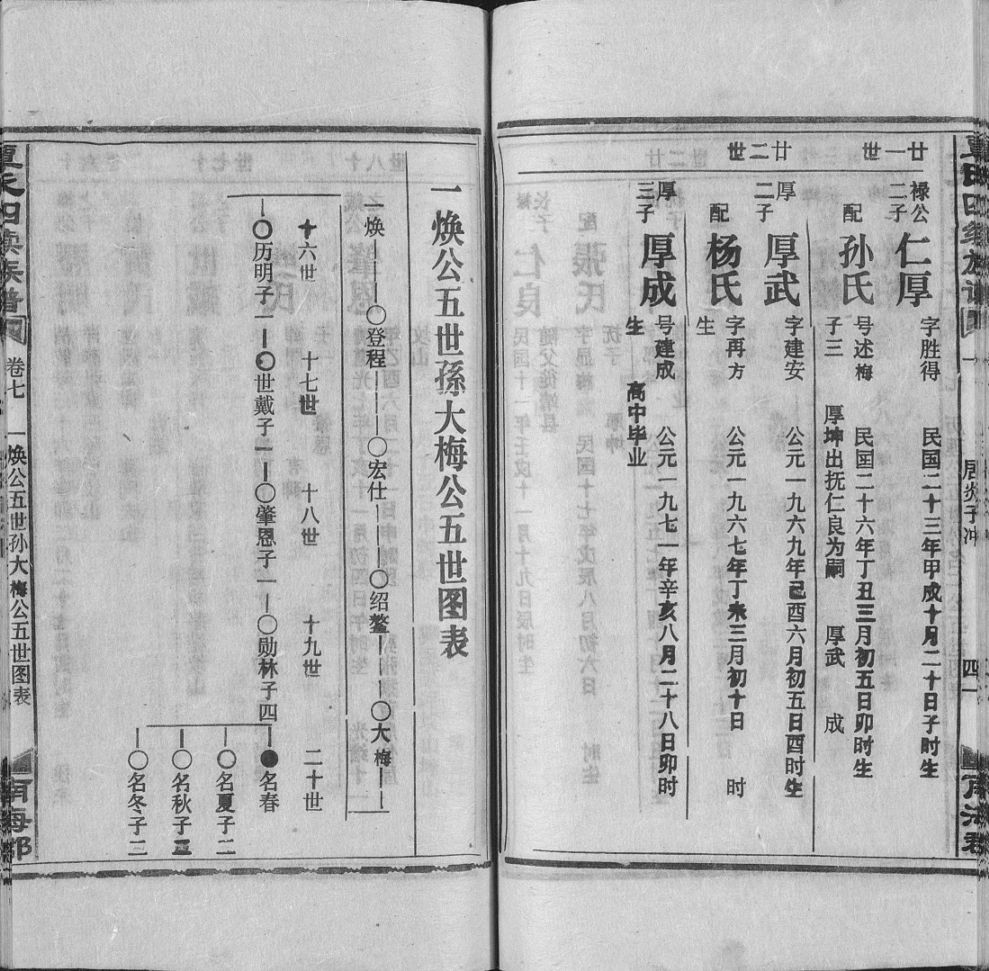 廿一世
禄公二子
仁厚
字胜得 民国二十三年甲戍十月二十日子时生
配
孙氏
号述梅 民国二十六年丁丑三月初五日卯时生
子三 厚坤出抚仁良为嗣 厚武 成
廿二世
厚二子
厚武
字建安 公元一九六九年己酉六月初五日酉时生
配
杨氏
字再方 公元一九六七年丁未三月初十日 时
生
厚三子
厚成
号建成 公元一九七一年辛亥八月二十八日卯时
生 高中毕业
居炎子冲
四一
一焕公五世孫大梅公五世图表
一焕
登程
宏仕
绍鳌
大梅
十六世
十七世
十八世
十九世
二十世
历明子一
世戴子一
肇恩子一
勋林子四
名春
名夏子二
名秋子三
名冬子二
卷七
一焕公五世孙大梅公五世图表